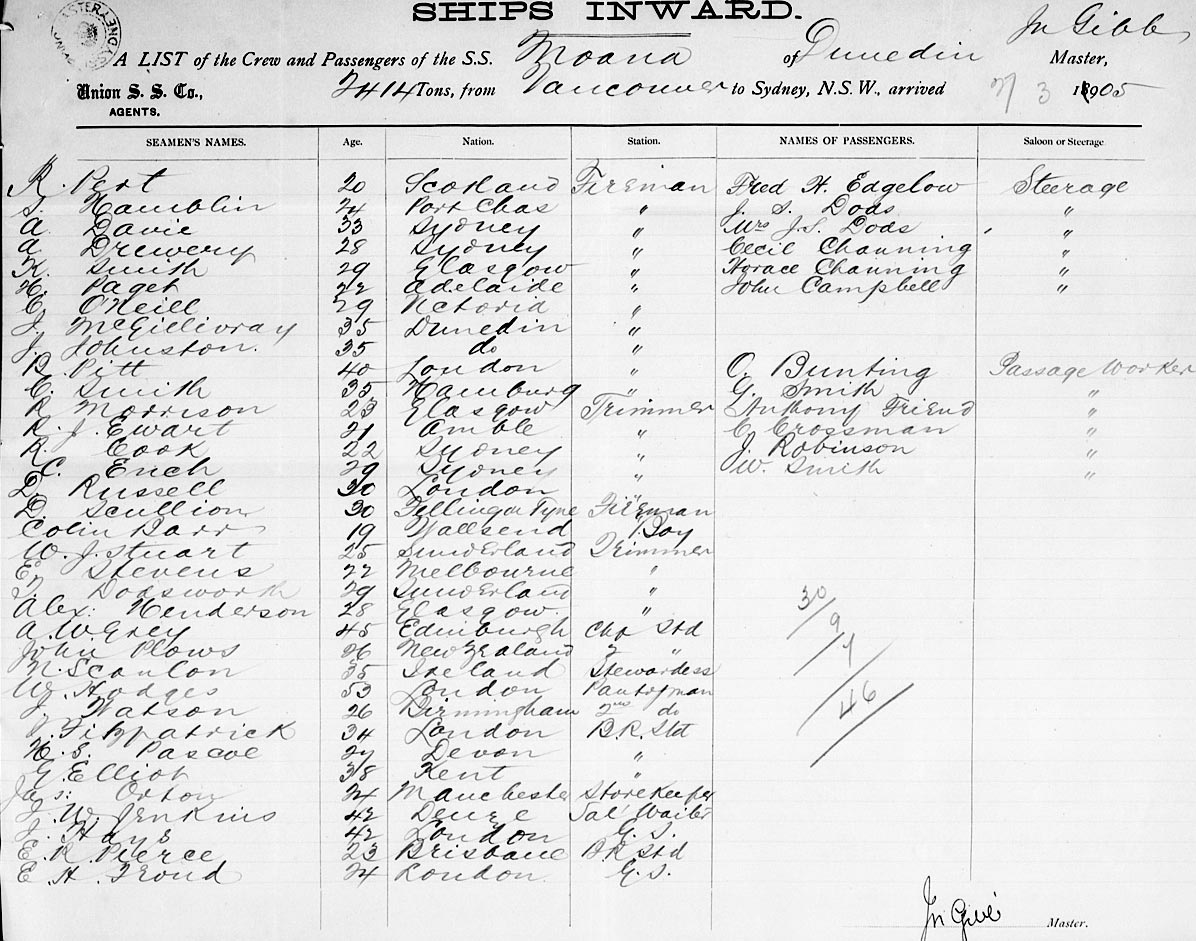 SHIPS INWARD.
A LIST of the Crew and Passengers of the S.S. Moana of Dunedin Jn Gibb Master,
Union S. S. Co., 2414 Tons, from Vancouver to Sydney, N.S.W., arrived 3 1905
AGENTS.
SEAMEN'S NAMES. Age. Nation. Station. NAMES OF PASSENGERS. Saloon or Steerage
R. Pert 20 Scotland Fireman Fred H. Edgelow Steerage
S. Hamblin 24 Port Chas " J. S. Dods "
A. Davie 33 Sydney " Mrs J. S. Dods "
A. Drewery 28 Sydney " Cecil Channing "
K. Smith 29 Glasgow " Horace Channing "
H. Paget 22 Adelaide " John Campbell "
C. O'Neill 29 Victoria "
J. McGillivray 35 Dunedin "
J. Johnston. 35 do "
B. Pitt 40 London " O. Bunting Passage Worker
C. Smith 35 Hamburg " G. Smith "
R. Morrison 23 Glasgow Trimmer Anthony Friend "
R. J. Ewart 21 Amble " C. Crossman "
R. Cook 22 Sydney " J. Robinson "
C. Erich 29 Sydney " W. Smith "
D. Russell 30 London "
D. Scullion 30 Fellingon Tyne Fireman
Colin Barr 19 Wallsend " Boy
W. J. Stuart 25 Sunderland Trimmer
E. Stevens 22 Melbourne "
T. Dodsworth 29 Sunderland "
Alex: Henderson 28 Glasgow. "
A. W Grey 45 Edinburgh Chf Std
John Plows 26 New Zealand 2 "
N. Scanlon 35 Ireland Stewardess
W. Hodges 53 London Pantryman
J. Watson 26 Birmingham 2nd do
J. Fitzpatrick 34 London B.R. Std
H. S. Pascoe 27 Devon "
G. Elliot 38 Kent "
Jas: Orton 24 Manchester Storekeeper
J. W. Jenkins 42 Sal Waiter
J. Hays 42 London G. S.
E. R. Pierce 23 Brisbane B.R Std
E. H. Froud 24 London. G. S.
30
9
7
46
Jn Gibb Master.